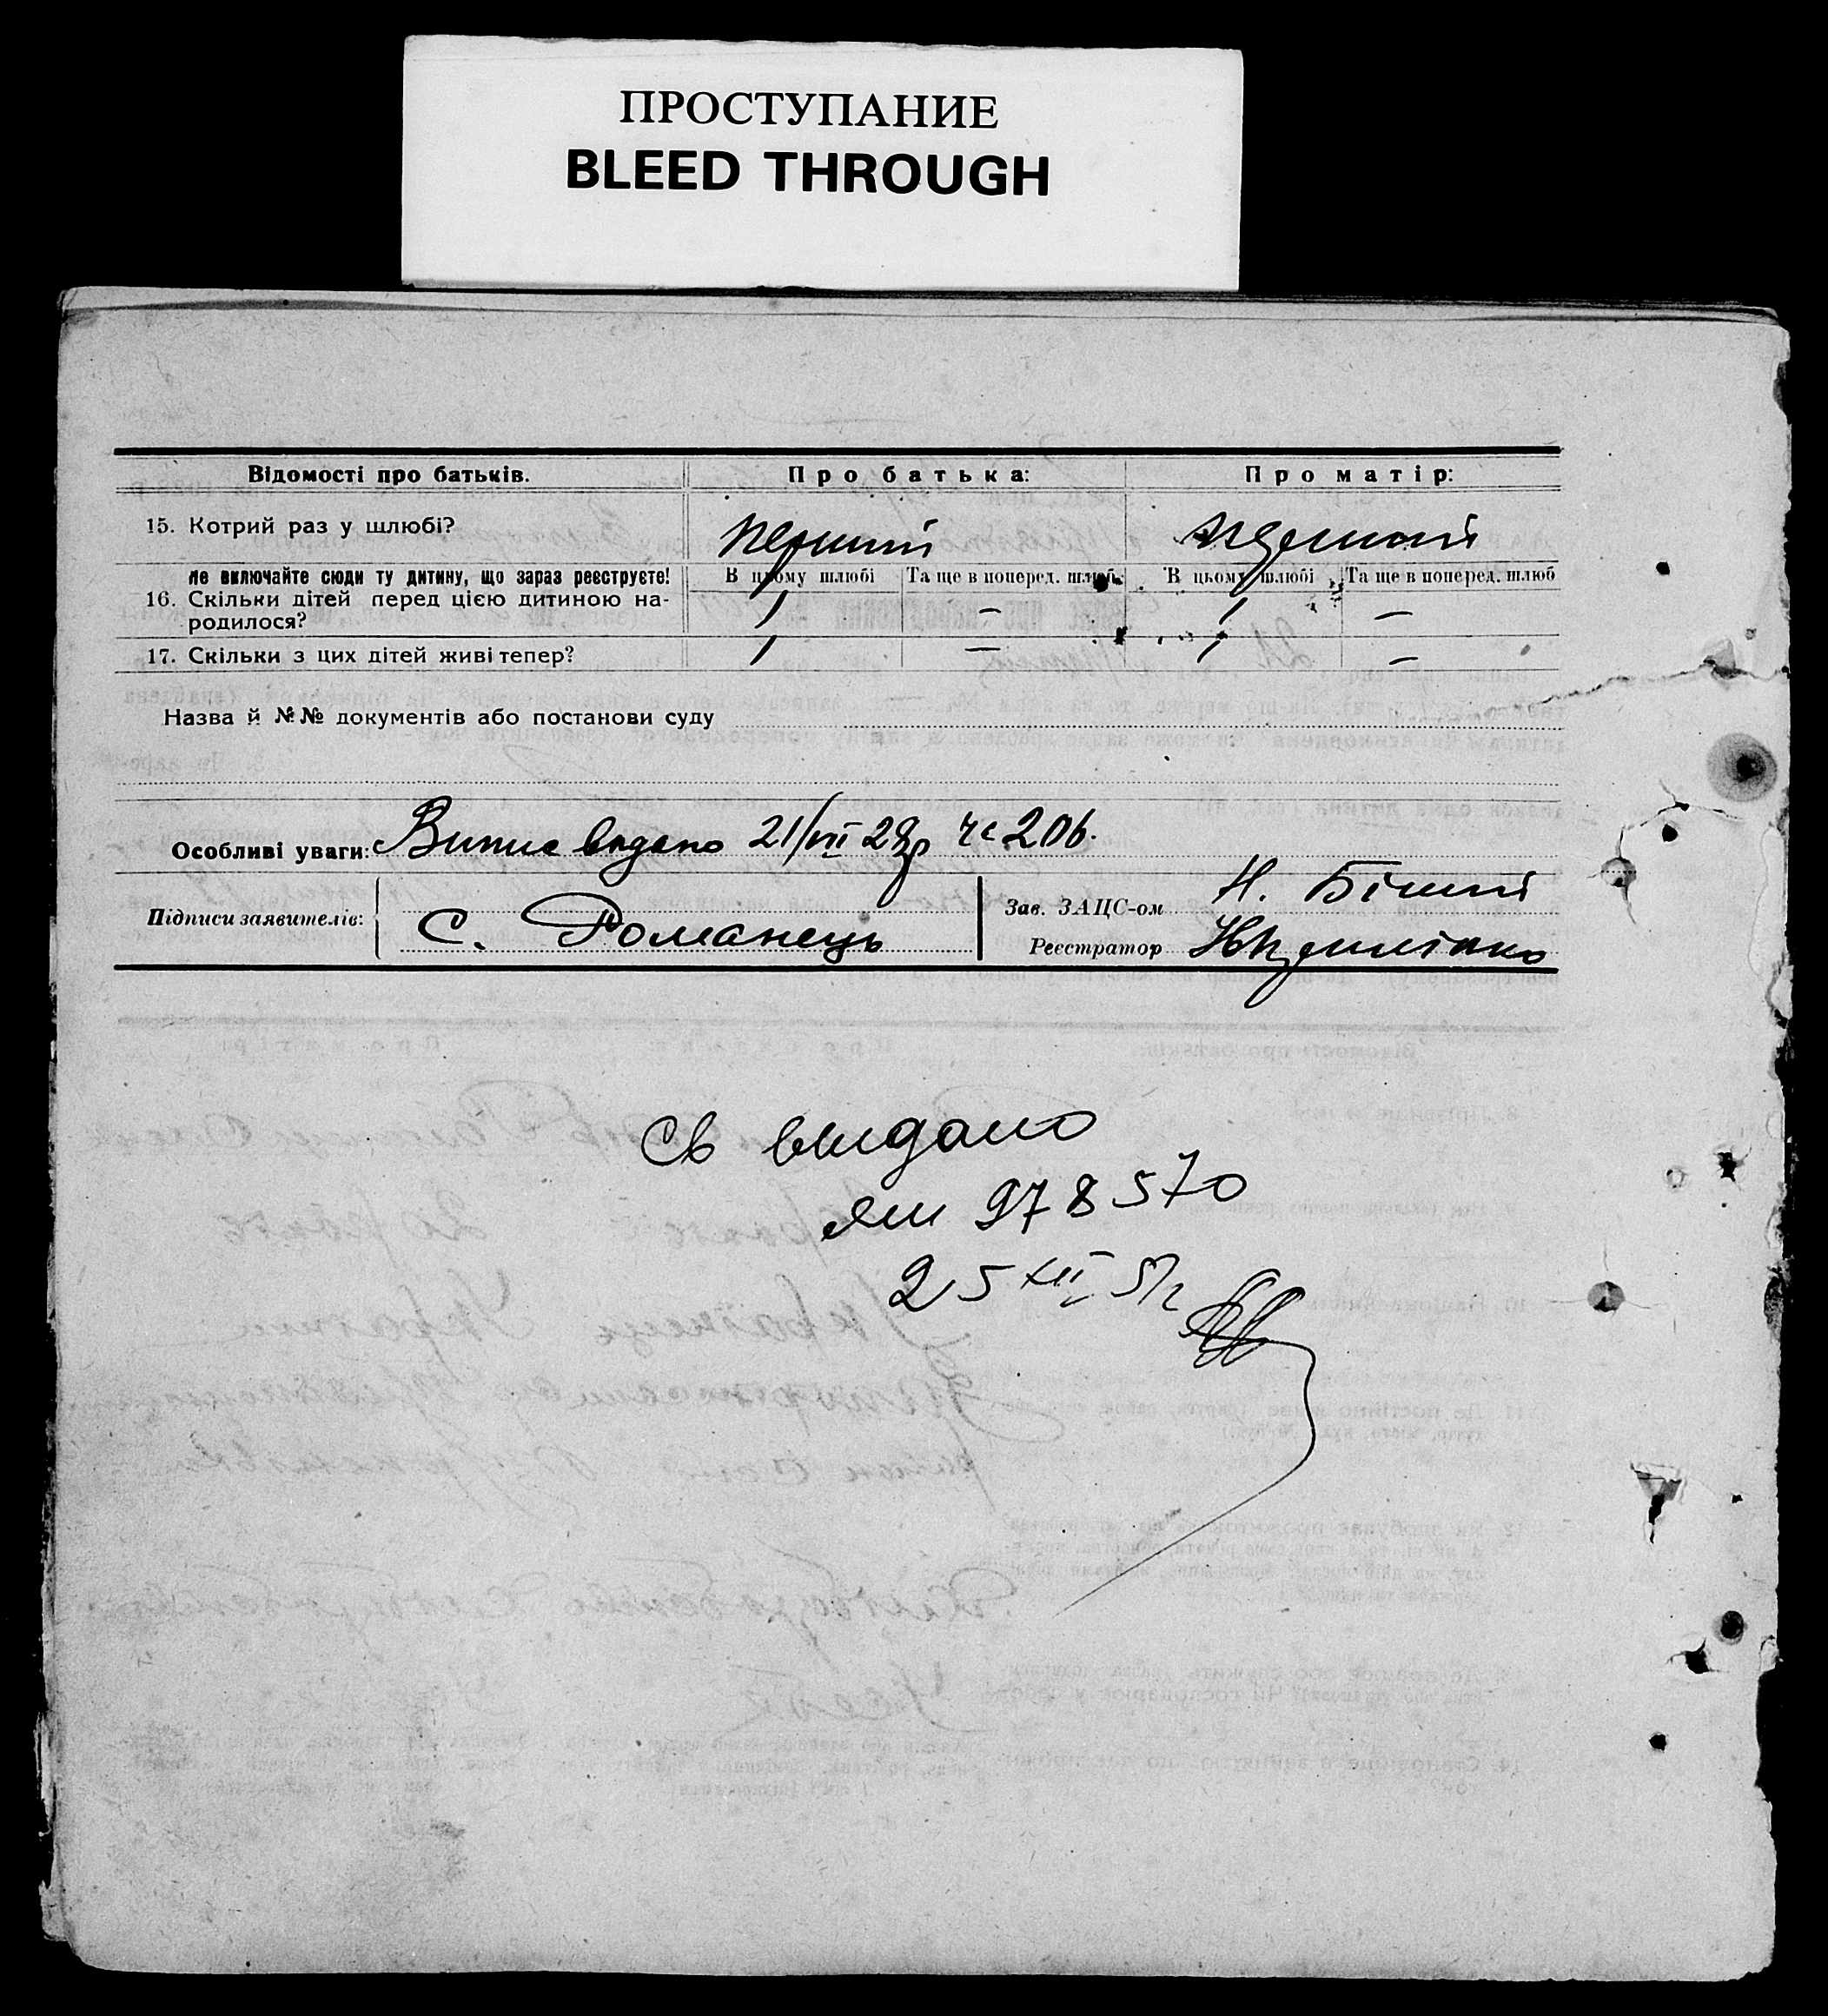 ПРОСТУПАНИЕ
BLEED THROUGH
Відомості про батьків. Про батька: Про матір:
15. Котрий раз у шлюбі? перший перший
Не включайте сюди ту дитину, що зараз реєструєте! В цьому шлюбі Та ще в поперед. шлюб. В цьому шлюбі Та ще в поперед. шлюб
16. Скільки дітей перед цією дитиною на-
родилося? 1 — 1 —
17. Скільки з цих дітей живі тепер? 1 — 1 —
Назва й №№ документів або постанови суду
Особливі уваги: Випис видано 21/VII 28р чс 206.
Підписи заявителів: С. Романець
Зав. ЗАЦС-ом Н.
Реєстратор
Св выдано
978570
25 XII